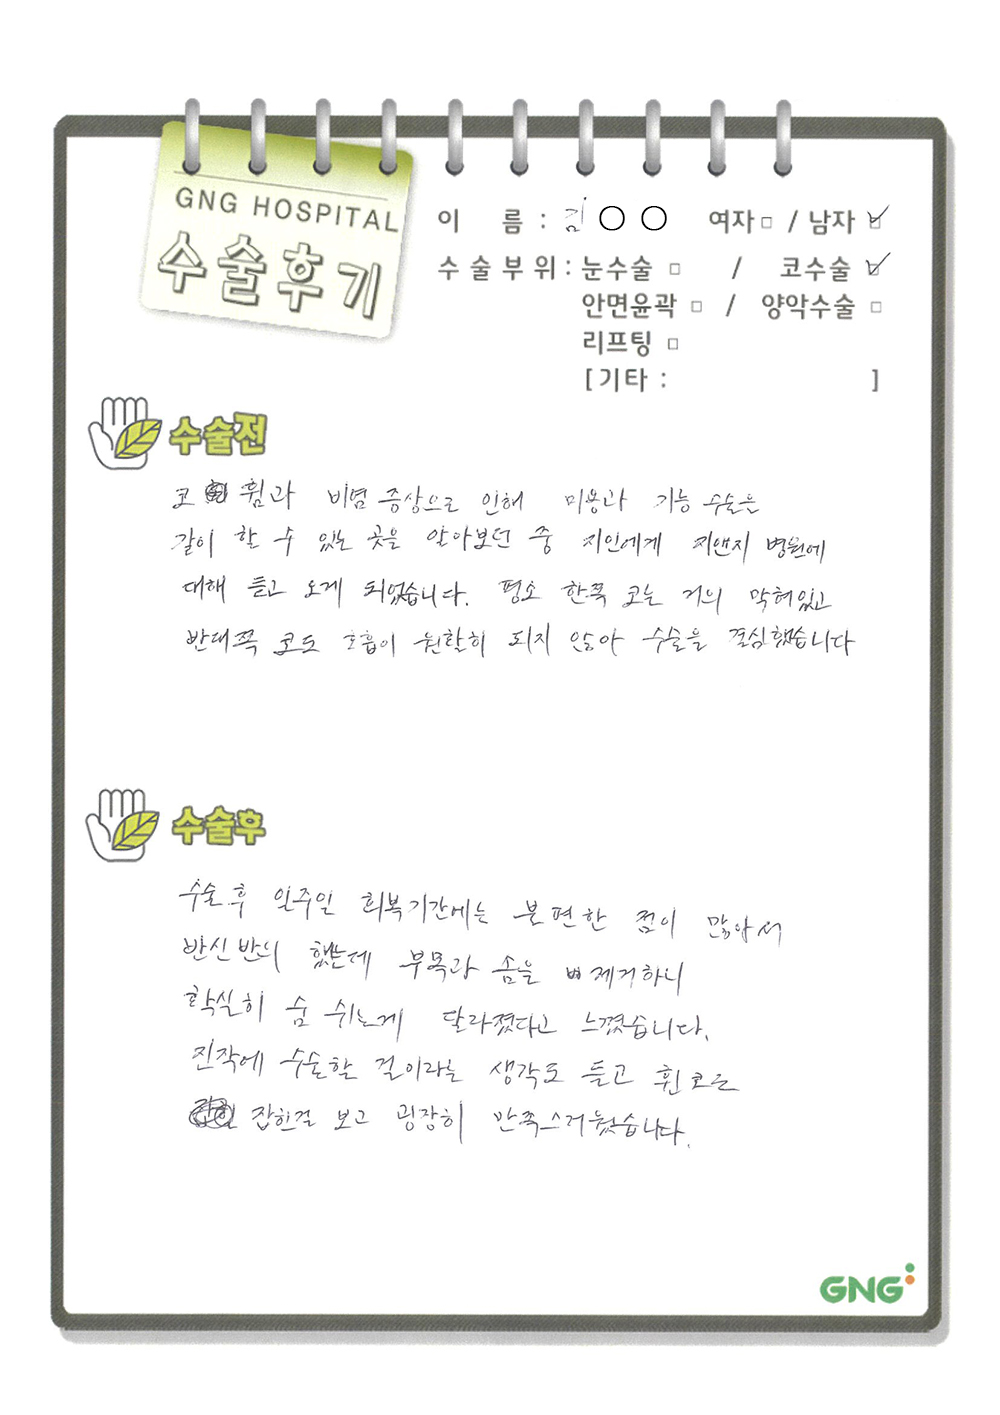 GNG HOSPITAL
수술후기
이 름 : 김 ○ ○ 여자 □ / 남자 ☑
수술부위 : 눈수술 □ / 코수술 ☑
안면윤곽 □ / 양악수술 □
리프팅 □
[기타 : ]
수술전
코 휨과 비염 증상으로 인해 미용과 기능 수술을
같이 할 수 있는 곳을 알아보던 중 지인에게 지앤지 병원에
대해 듣고 오게 되었습니다. 평소 한쪽 코는 거의 막혀있고
반대쪽 코도 호흡이 원할히 되지 않아 수술을 결심했습니다
수술후
수술 후 일주일 회복기간에는 불편한 점이 많아서
반신반의 했는데 부목과 솜을 제거하니
확실히 숨 쉬는게 달라졌다고 느꼈습니다.
진작에 수술할 걸이라는 생각도 들고 휜 코는
잡힌걸 보고 굉장히 만족스러웠습니다.
GNG